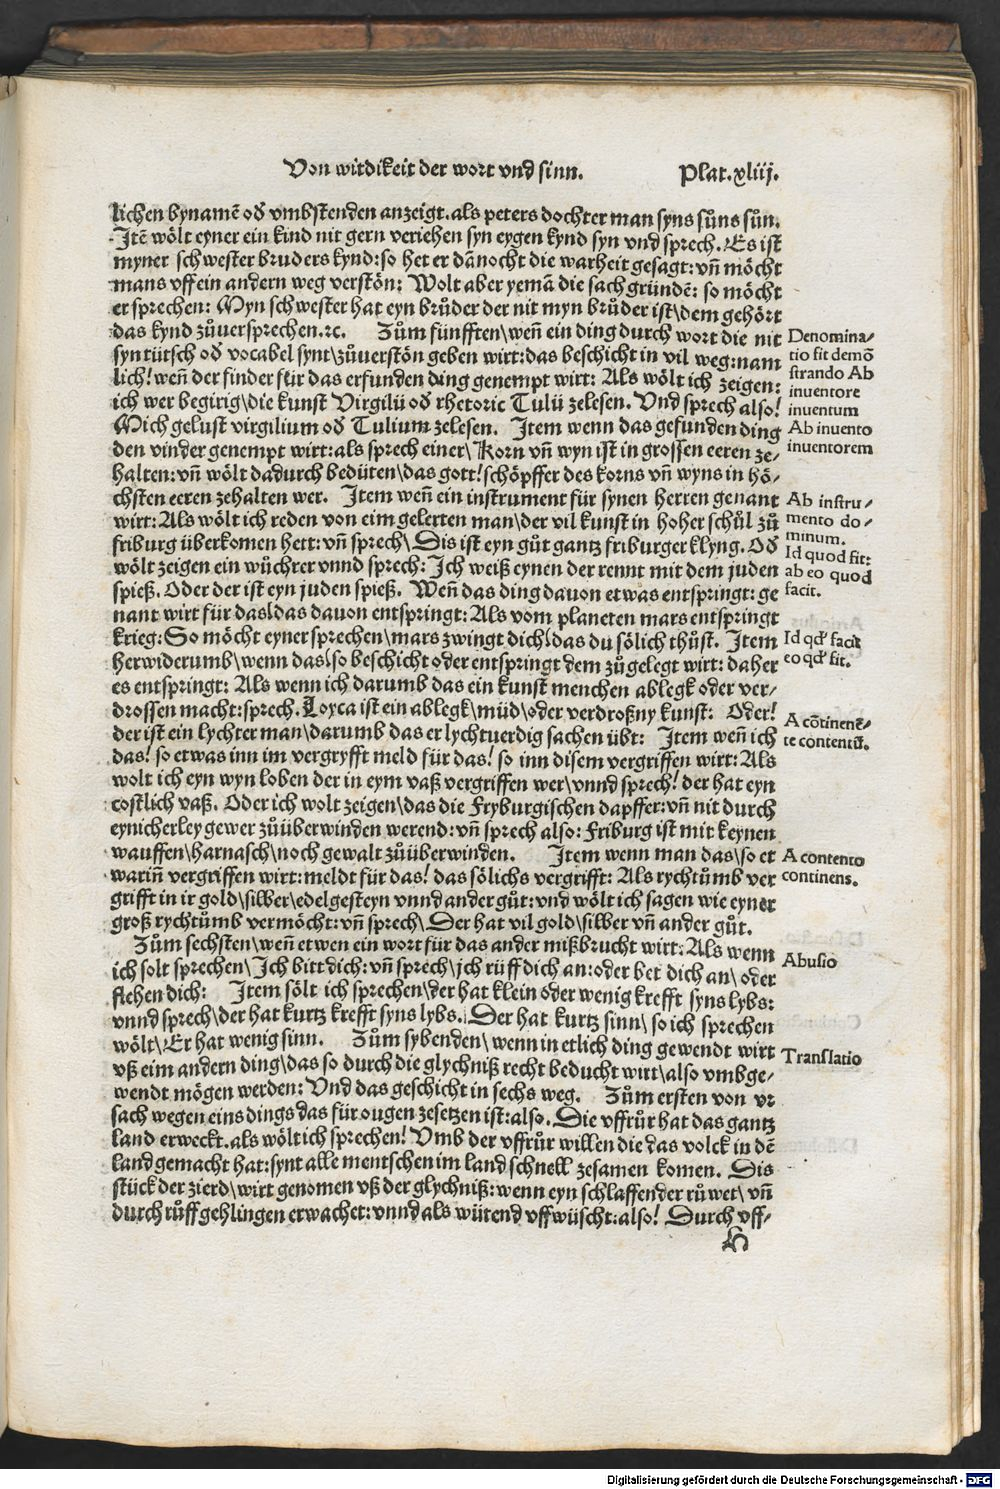 Von wirdikeit der wort vnd sinn.
Plat.xliij.
lichen bynamē od̄ vmbstenden anzeigt.als peters dochter man syns sůns sůn.
Itē wölt eyner ein kind nit gern veriehen syn eygen kynd syn vnd sprech. Es ist
myner schwester bruders kynd:so het er dānocht die warheit gesagt: vn̄ möcht
mans vff ein andern weg verstön: Wolt aber yemā die sach gründē: so möcht
er sprechen: Myn schwester hat eyn brůder der nit myn brůder ist\dem gehört
das kynd zůuersprechen.ꝛc. Zům fünfften\wen̄ ein ding durch wort die nit
syn tütsch od̄ vocabel synt\zůuerstön geben wirt:das beschicht in vil weg:nam
lich! wen̄ der finder für das erfunden ding genempt wirt: Als wölt ich zeigen:
ich wer begirig\die kunst Virgilij od̄ rhetoric Tulij zelesen. Vnd sprech also!
Mich gelust virgilium od̄ Tulium zelesen. Item wenn das gefunden ding
den vinder genempt wirt:als sprech einer\ Korn vn̄ wyn ist in grossen eeren ze-
halten:vn̄ wölt dadurch bedüten\das gott!schöpffer des korns vn̄ wyns in hö-
chsten eeren zehalten wer. Item wen̄ ein instrument für synen herren genant
wirt: Als wölt ich reden von eim gelerten man\der vil kunst in hoher schůl zů
friburg überkomen hett: vn̄ sprech\ Dis ist eyn gůt gantz friburger klyng. Od̄
wölt zeigen ein wůchrer vnnd sprech: Ich weiß eynen der rennt mit dem juden
spieß. Oder der ist eyn juden spieß. Wen̄ das ding dauon etwas entspringt: ge
nant wirt für das\das dauon entspringt: Als vom planeten mars entspringt
krieg: So möcht eyner sprechen\mars zwingt dich\das du sölich thůst. Item
herwiderumb\wenn das\so beschicht oder entspringt dem zůgelegt wirt: daher
es entspringt: Als wenn ich darumb das ein kunst menchen ablegk oder ver-
drossen macht:sprech. Loyca ist ein ablegk\müd\oder verdroßny kunst: Oder!
der ist ein lychter man\darumb das er lychtuerdig sachen übt: Item wen̄ ich
das! so etwas inn im vergryfft meld für das! so inn disem vergriffen wirt: Als
wolt ich eyn wyn loben der in eym vaß vergriffen wer\vnnd sprech! der hat eyn
costlich vaß. Oder ich wolt zeigen\das die Fryburgischen dapffer:vn̄ nit durch
eynicherley gewer zůüberwinden werend: vn̄ sprech also: Friburg ist mit keynen
wauffen\harnasch\noch gewalt zůüberwinden. Item wenn man das\so er
warin̄ vergriffen wirt:meldt für das! das sölichs vergrifft: Als rychtůmb ver
grifft in ir gold\silber\edelgesteyn vnnd ander gůt: vnd wölt ich sagen wie eyner
groß rychtůmb vermöcht: vn̄ sprech\ Der hat vil gold\silber vn̄ ander gůt.
Zům sechsten\wen̄ etwen ein wort für das ander mißbrucht wirt: Als wenn
ich solt sprechen\ Ich bitt dich: vn̄ sprech\ jch rüff dich an:oder bet dich an\ oder
flehen dich: Item sölt ich sprechen\der hat klein oder wenig krefft syns lybs:
vnnd sprech\der hat kurtz krefft syns lybs. Der hat kurtz sinn\ so ich sprechen
wölt\ Er hat wenig sinn. Zům sybenden\ wenn in etlich ding gewendt wirt
vß eim andern ding\das so durch die glychniß recht beducht wirt\also vmbge-
wendt mögen werden: Vnd das geschicht in sechs weg. Zům ersten von vr
sach wegen eins dings das für ougen zesetzen ist:also. Die vffrůr hat das gantz
land erweckt.als wölt ich sprechen! Vmb der vffrůr willen die das volck in dē
land gemacht hat:synt alle mentschen im land schnell zesamen komen. Dis
stück der zierd\wirt genomen vß der glychniß: wenn eyn schlaffender růwet\ vn̄
durch růff gehlingen erwachet: vnnd als wütend vffwüscht:also! Durch vff-
H
Denomina-
tio fit demō
strando Ab
inuentore
inuentum
Ab inuento
inuentorem
Ab instru-
mento do-
minum.
Id quod fit:
ab eo quod
facit.
Id qd̄ facit
eo qd̄ fit.
A cōtinenē-
te contentū.
A contento
continens.
Abusio
Translatio
Digitalisierung gefördert durch die Deutsche Forschungsgemeinschaft - DFG